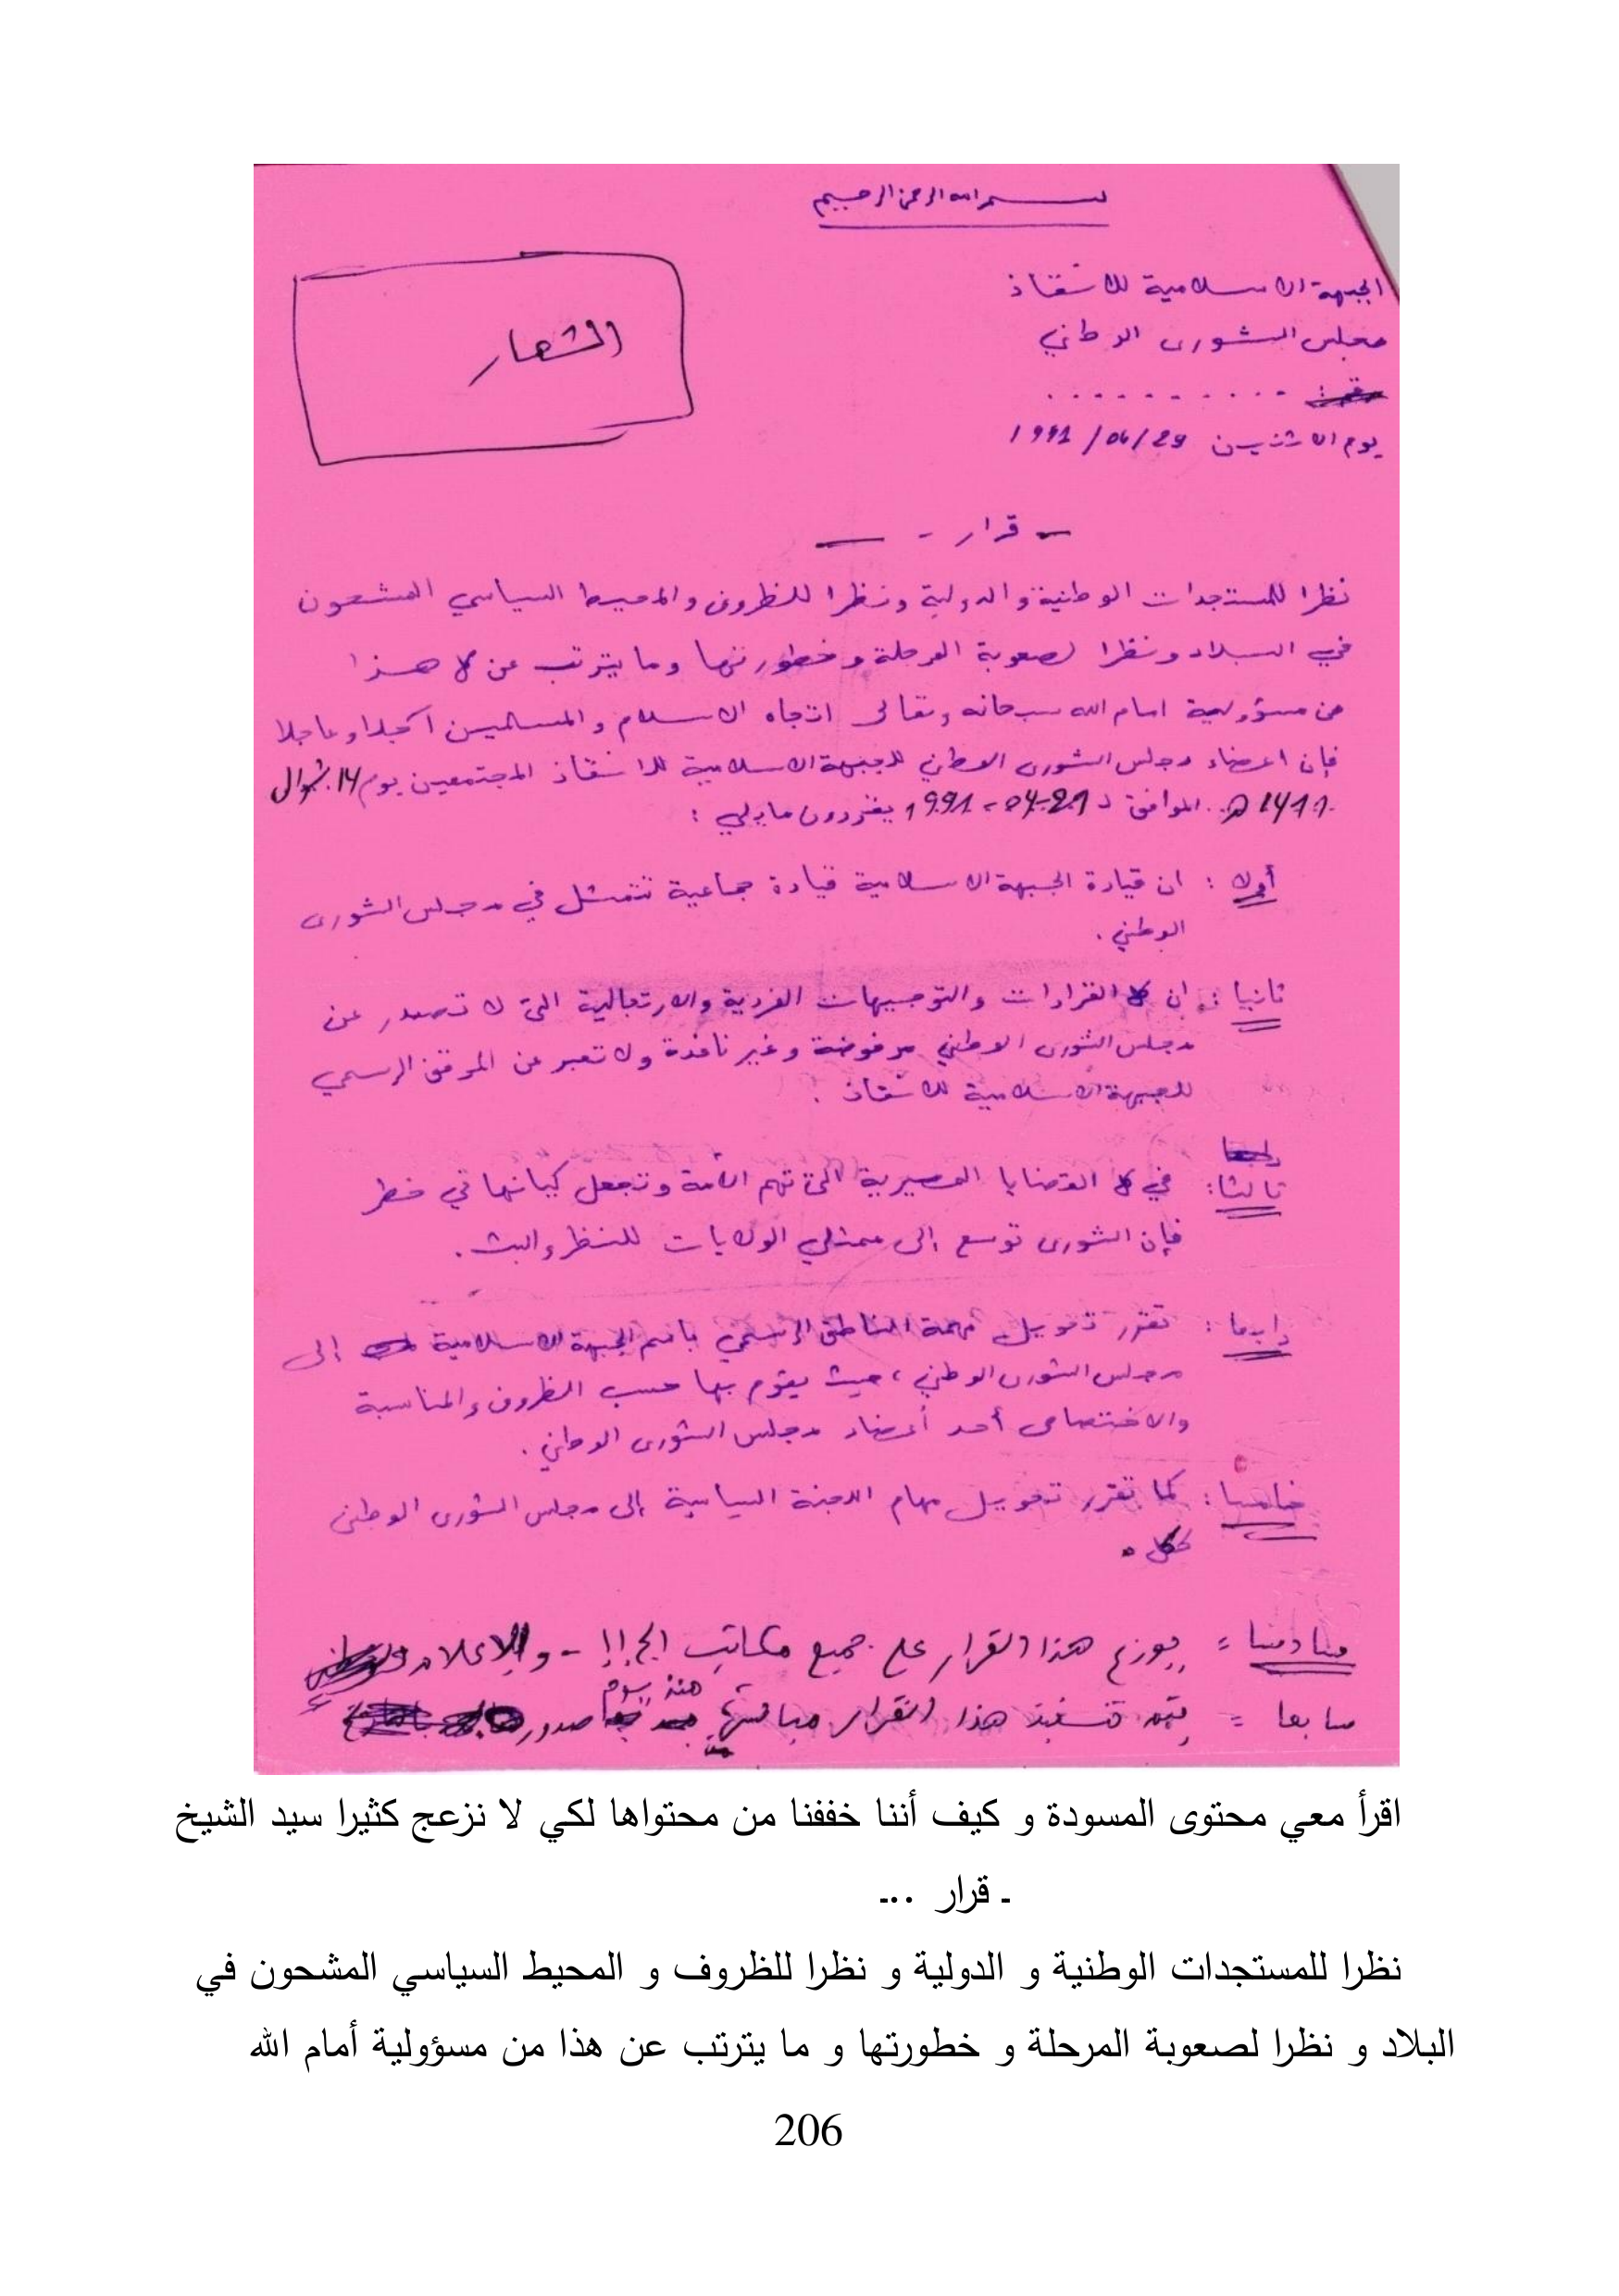 بسم الله الرحمن الرحيم
الجبهة الاسلامية للانقاذ
مجلس الشورى الوطني
الشعار
يوم الاثنين 29/04/1991
- قرار -
نظرا للمستجدات الوطنية والدولية ونظرا للظروف والمحيط السياسي المشحون
في البلاد ونظرا لصعوبة المرحلة وخطورتها وما يترتب عن كل هذا
من مسؤولية امام الله سبحانه وتعالى اتجاه الاسلام والمسلمين آجلا وعاجلا
فإن اعضاء مجلس الشورى الوطني للجبهة الاسلامية للانقاذ المجتمعين يوم 14 شوال
1411 هـ الموافق لـ 29-04-1991 يقررون مايلي :
أولا : ان قيادة الجبهة الاسلامية قيادة جماعية تتمثل في مجلس الشورى
الوطني .
ثانيا : ان كل القرارات والتوجيهات الفردية والارتجالية التي لا تصدر عن
مجلس الشورى الوطني مرفوضة وغير نافذة ولا تعبر عن الموقف الرسمي
للجبهة الاسلامية للانقاذ .
ثالثا : في كل القضايا المصيرية التي تهم الأمة وتجعل كيانها في خطر
فإن الشورى توسع إلى ممثلي الولايات للنظر والبث .
رابعا : تقرر تحويل مهمة الناطق الرسمي باسم الجبهة الاسلامية إلى
مجلس الشورى الوطني ، حيث يقوم بها حسب الظروف والمناسبة
والاختصاص أحد أعضاء مجلس الشورى الوطني .
خامسا : كما تقرر تحويل مهام اللجنة السياسية إلى مجلس الشورى الوطني
ككل .
سادسا = يوزع هذا القرار على جميع مكاتب الج إ إ - والإعلام
سابعا = يتم تنفيذ هذا القرار مباشرة منذ يوم صدور
اقرأ معي محتوى المسودة و كيف أننا خففنا من محتواها لكي لا نزعج كثيرا سيد الشيخ
ـ قرار ..ـ
نظرا للمستجدات الوطنية و الدولية و نظرا للظروف و المحيط السياسي المشحون في
البلاد و نظرا لصعوبة المرحلة و خطورتها و ما يترتب عن هذا من مسؤولية أمام الله
206